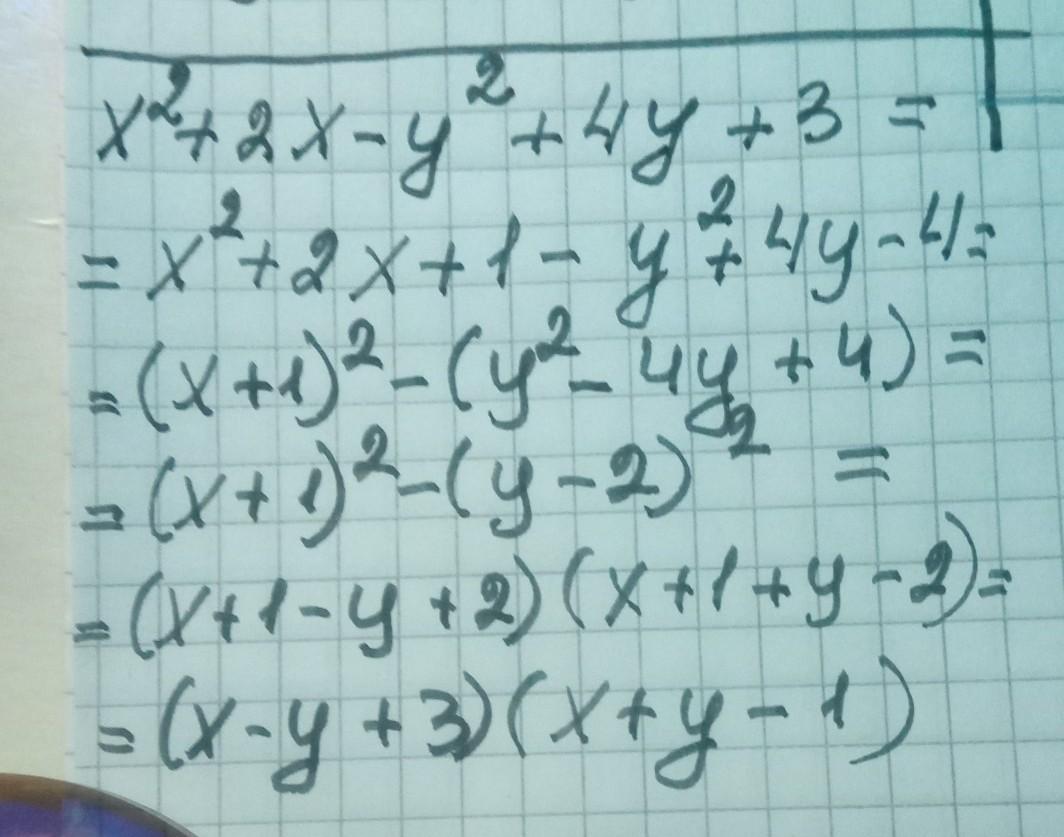 x²+2x-y²+4y+3=
=x²+2x+1-y²+4y-4=
=(x+1)²-(y²-4y+4)=
=(x+1)²-(y-2)²=
=(x+1-y+2)(x+1+y-2)=
=(x-y+3)(x+y-1)